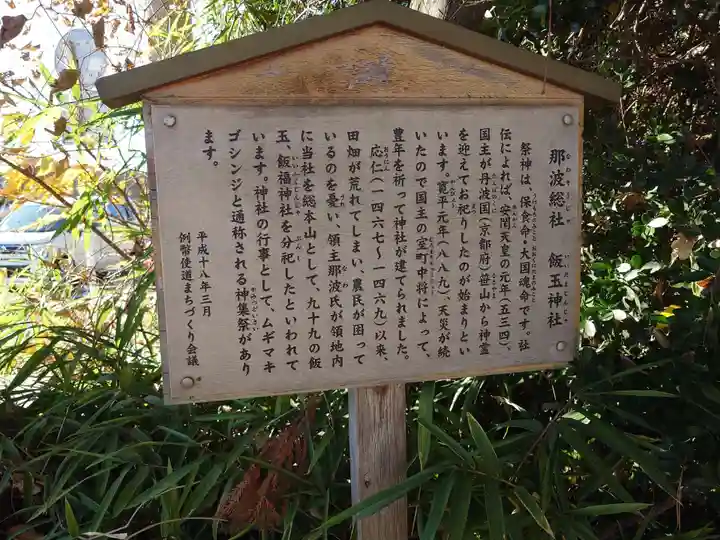 那波総社　飯玉神社
祭神は、保食命・大国魂命です。社
伝によれば、安閑天皇の元年(五三四)、
国主が丹波国(京都府)笹山から神霊
を迎えてお祀りしたのが始まりとい
います。寛平元年(八八九)、天災が続
いたので国主の室町中将によって、
豊年を祈って神社が建てられました。
応仁(一四六七〜一四六九)以来、
田畑が荒れてしまい、農民が困って
いるのを憂い、領主那波氏が領地内
に当社を総本山として、九十九の飯
玉、飯福神社を分祀したといわれて
います。神社の行事として、ムギマキ
ゴシンジと通称される神集祭があり
ます。
平成十八年三月
例幣使道まちづくり会議